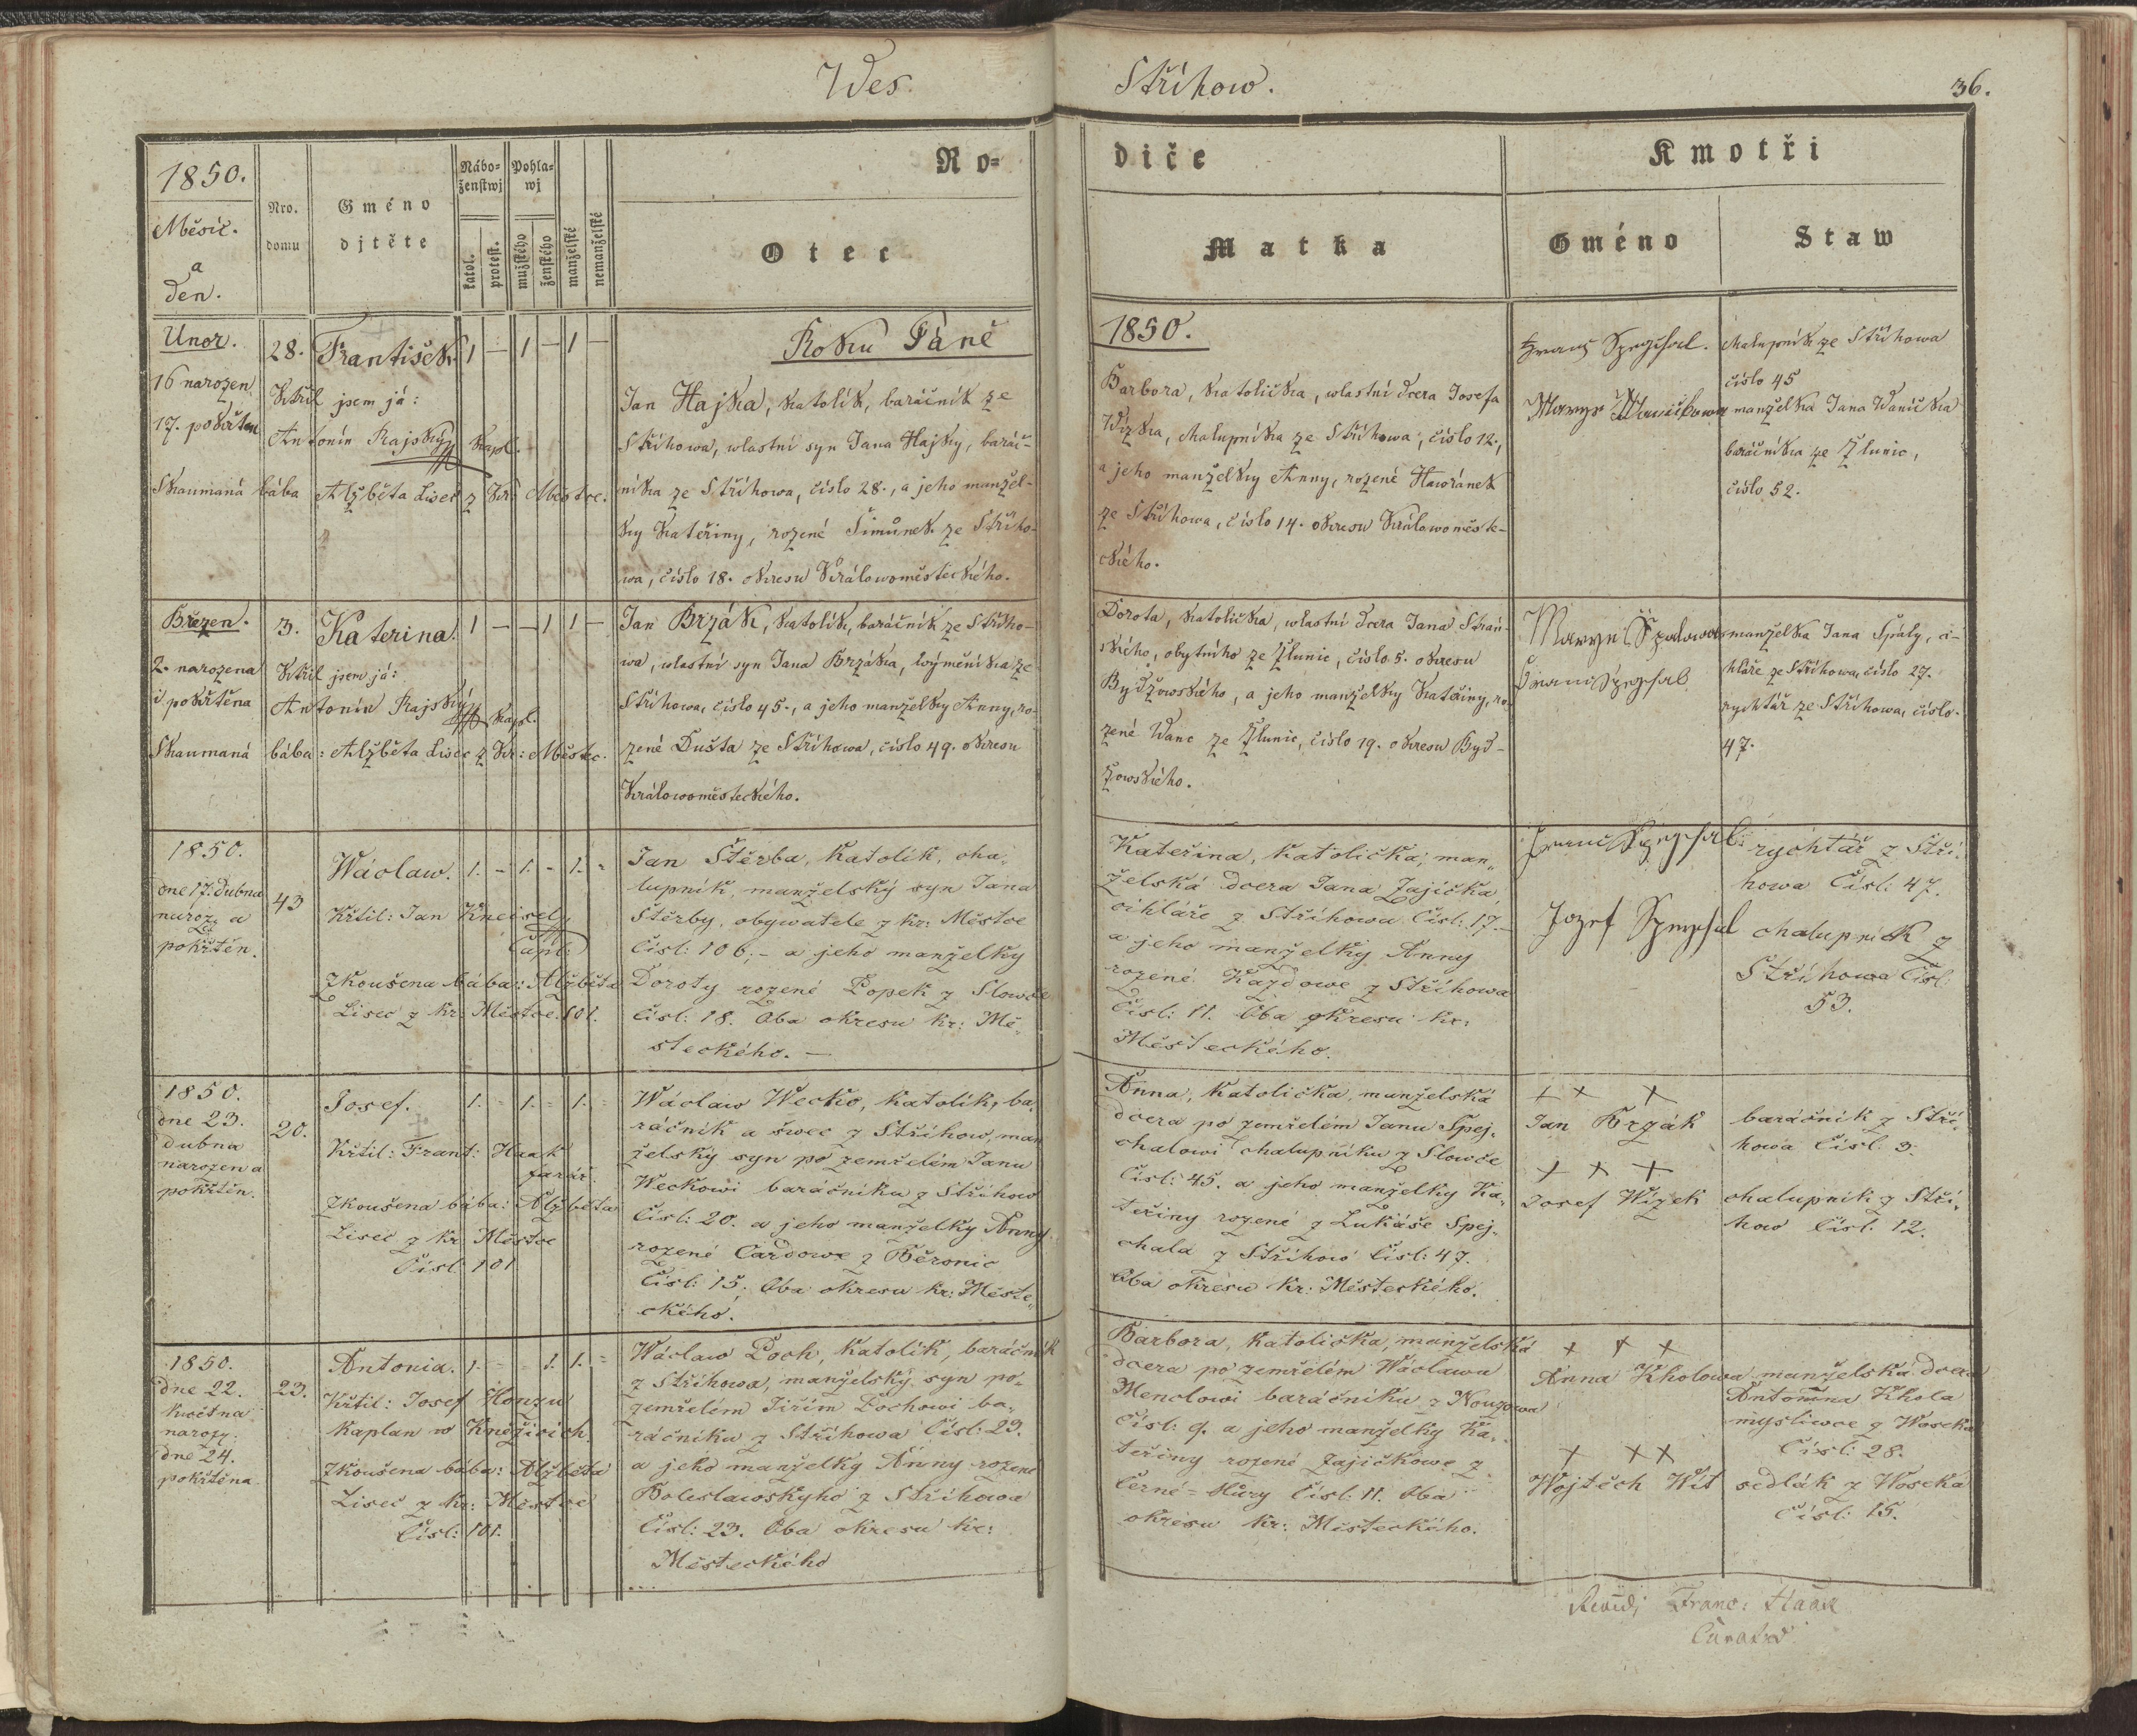 Wes
Střihow.
36.
1850.
Měsíc.
a
den.
Nro.
domu
Gméno
djtěte
Nábo-
ženstwj
katol.
protest.
Pohla-
wj
mužského
ženského
manželské
nemanželské
Ro-
Otec
diče
Matka
Kmotři
Gméno
Staw
Unor.
16 narozen
17. pokřten
28.
František.
1 — 1 — 1 —
Křtil jsem já:
Antonín Rajský kapl.
Zkaumaná bába Alžběta Lisec z Kr. Městce.
Roku Páně
Jan Hajka, katolík, baráčník ze
Střihowa, wlastní syn Jana Hajky, baráč-
níka ze Střihowa, číslo 28., a jeho manžel-
ky Kateřiny, rozené Šimůnek ze Střiho-
wa, číslo 18. okresu Králowoměsteckého.
1850.
Barbora, katolička, wlastní dcera Josefa
Wízka, chalupníka ze Střihowa, číslo 12.,
a jeho manželky Anny, rozené Hawránek
ze Střihowa, číslo 14. okresu Králowoměste-
ckého.
chalupník ze Střihowa
číslo 45
manželka Jana Waníčka
baráčníka ze Žlunic,
číslo 52.
Březen.
2. narozena
i pokřtěna
3.
Katerina.
1 — — 1 1 —
Křtil jsem já:
Antonín Rajský kapl.
Zkaumaná bába: Alžběta Lisec z Kr: Městec.
Jan Brzák, katolík, baráčník ze Střiho-
wa, wlastní syn Jana Brzáka, wýměníka ze
Střihowa, číslo 45., a jeho manželky Anny, ro-
zené Dušta ze Střihowa, číslo 49. okresu
Králowoměsteckého.
Dorota, katolička, wlastní dcera Jana Stran-
ského, obytního ze Žlunic, číslo 5. okresu
Bydžowského, a jeho manželky Kateřiny, ro-
zené Wanc ze Žlunic, číslo 19. okresu Byd-
žowského.
Marye Špalowa
manželka Jana Špály, ci-
hláře ze Střihowa, číslo 27.
rychtář ze Střihowa, číslo
47.
1850.
dne 17. dubna
naroz. a
pokřtěn.
43
Wáclaw. 1. - 1. - 1. -
Křtil: Jan Kneisely
Capl:
Zkoušena bába: Alžběta
Lisec z Kr: Městce. 101.
Jan Štěrba, Katolík, cha-
lupník, manželský syn Jana
Štěrby, obywatele z Kr: Městce
Čisl: 106; - a jeho manželky
Doroty rozené Popek z Slowče
Čisl: 18. Oba okresu Kr: Mě-
steckého. —
Kateřina, Katolička, man-
želská dcera Jana Zajíčka,
cihláře z Střihowa Čisl: 17. -
a jeho manželky Anny
rozené Kazdowe z Střihowa
Čisl: 11. Oba okresu Kr:
Městeckého.
rychtář z Stři-
howa Čisl: 47.
Jozef
chalupník z
Střihowa Čisl:
53.
1850.
dne 23.
dubna
narozen a
pokřtěn.
20.
Josef. 1. - 1. - 1. -
Křtil: Frant: Haak
farář.
Zkoušena bába: Alžběta
Lisec z Kr Městce
Čisl: 101
Wáclaw Wecko, Katolík, ba-
ráčník a šwec z Střihow, man
želský syn po zemřelém Janu
Weckowi baráčníku z Střihow
Čisl: 20. a jeho manželky Anny
rozené Cardowe z Běronic
Čisl: 15; Oba okresu Kr: Měste-
ckého.
Anna, Katolička, manželská
dcera po zemřelém Janu Spej-
chalowi chalupníku z Slowče
Čisl: 45. a jeho manželky Ka-
teřiny rozené z Lukáše Spej-
chala z Střihow Čisl: 47.
Oba okresu Kr: Městeckého.
+ + +
Jan Brzák
baráčník z Stři-
howa Čisl: 3.
+ + +
Josef Wízek
chalupník z Stři-
how Čisl. 12.
1850.
dne 22.
Kwětna
naroz.
dne 24.
pokřtěna
23.
Antonia. 1. - - 1. 1. -
Křtil: Josef Honzu
Kaplan w Kněžicích.
Zkoušena bába: Alžběta
Lisec z Kr: Městce
Čisl: 101.
Wáclaw Poch, Katolík, baráčník
z Střihowa, manželský syn po
zemřelém Jiřím Pochowi ba-
ráčníku z Střihowa Čisl: 23.
a jeho manželky Anny rozené
Boleslawskýho z Střihowa
Čisl: 23. Oba okresu Kr:
Městeckého
Barbora, Katolička, manželská
dcera po zemřelém Wáclawu
Menclowi baráčníku z Nouzowa
Čisl: 9. a jeho manželky Ka-
teřiny rozené Zajíčkowe z
Černé-Hůry Čisl: 11. Oba
okresu Kr: Městeckého.
+ + +
Anna Kholowa
manželská dcera
Antonína Khola
mysliwce z Woseka
Čisl: 28.
+ + +
Wojtěch Wít
sedlák z Woseka
Čisl: 15.
Franc: Haak